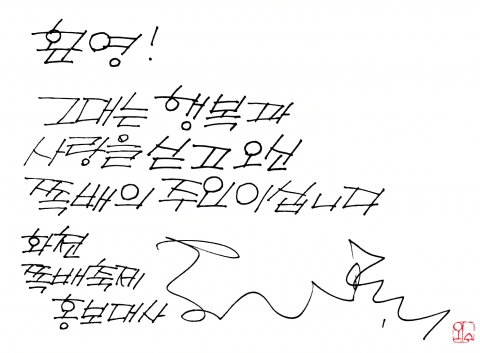 환영!
그대는 행복과
사랑을 싣고 오신
쪽배의 주인이십니다
화천
쪽배축제
홍보대사